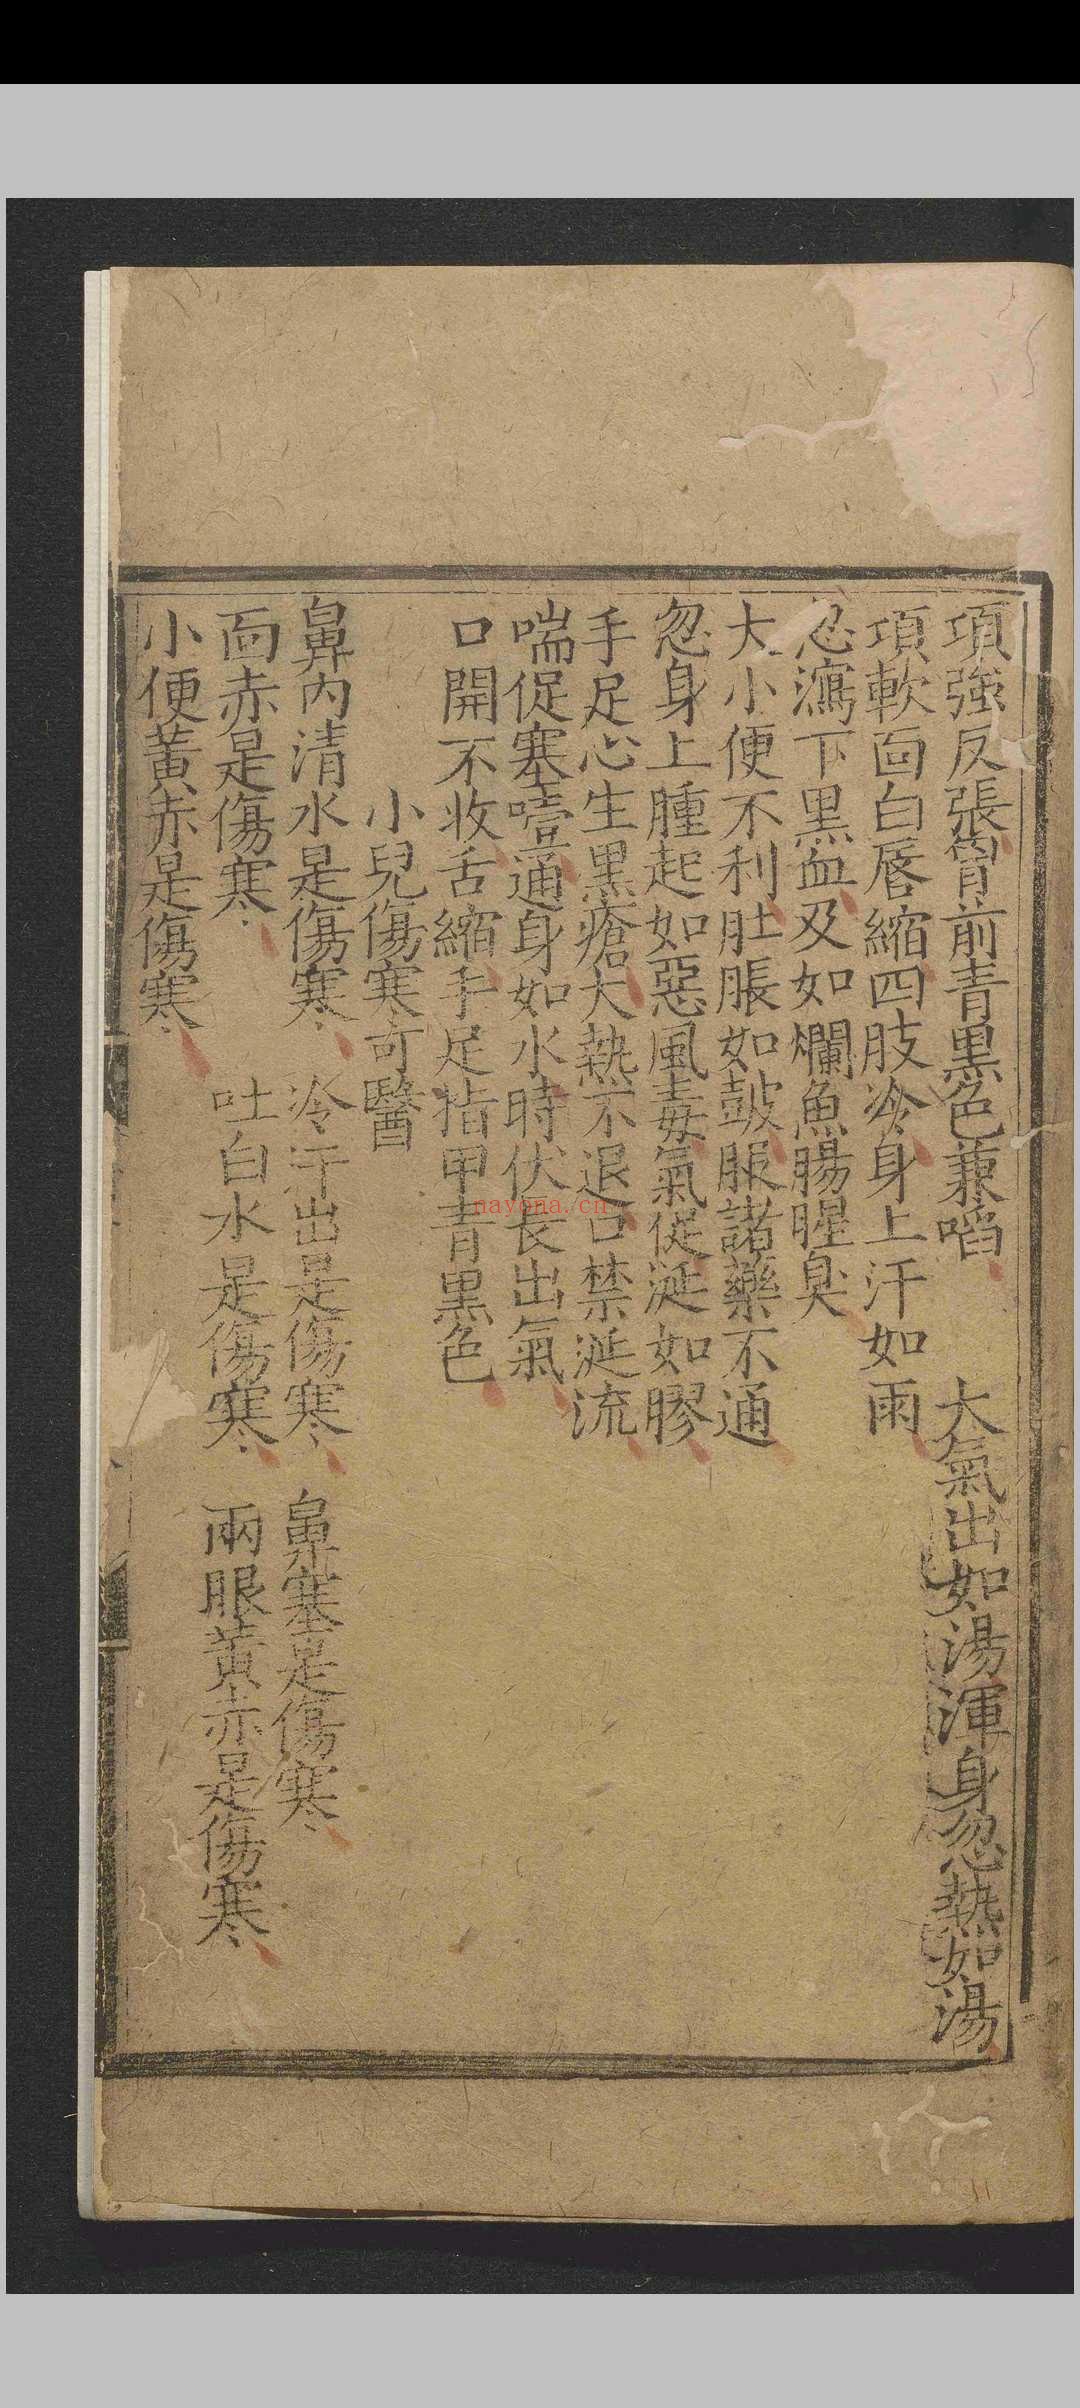 項強反張胷前青黑色兼啗　大氣出如湯渾身忽熱如湯
項軟面白唇縮四肢冷身上汗如雨
忽瀉下黑血及如爛魚腸腥臭
大小便不利肚脹如皷服諸藥不通
忽身上腫起如惡風毒氣促涎如膠
手足心生黑瘡大熱不退口禁涎流
喘促塞噎通身如水時伏長出氣
口開不收舌縮手足指甲青黑色
小兒傷寒可醫
鼻內清水是傷寒　冷汗出是傷寒　鼻塞是傷寒
面赤是傷寒　吐白水是傷寒　兩眼黃赤是傷寒
小便黃赤是傷寒
nayona.cn